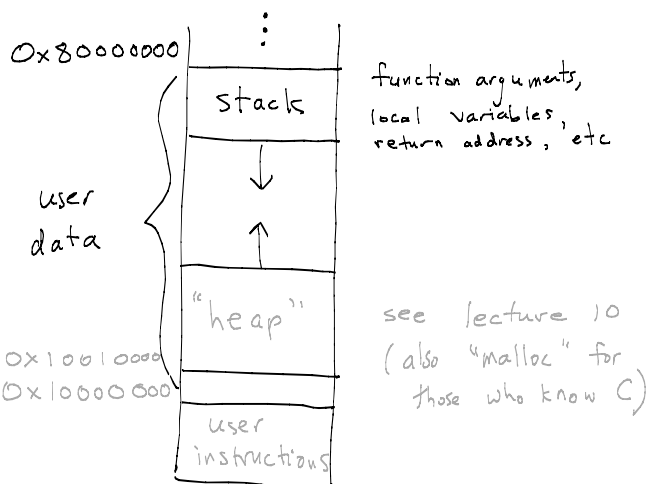 0x80000000
stack
function arguments,
local variables,
return address, etc
user
data
"heap"
see lecture 10
(also "malloc" for
those who know C)
0x10010000
0x10000000
user
instructions